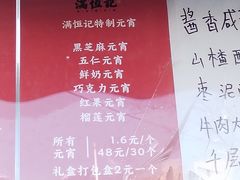 满恒记
满恒记特制元宵
黑芝麻元宵
五仁元宵
鲜奶元宵
巧克力元宵
红果元宵
榴莲元宵
所有 1.6元/个
元宵 48元/30个
礼盒打包盒2元一个
酱香咸
山楂
枣泥
牛肉大
千层